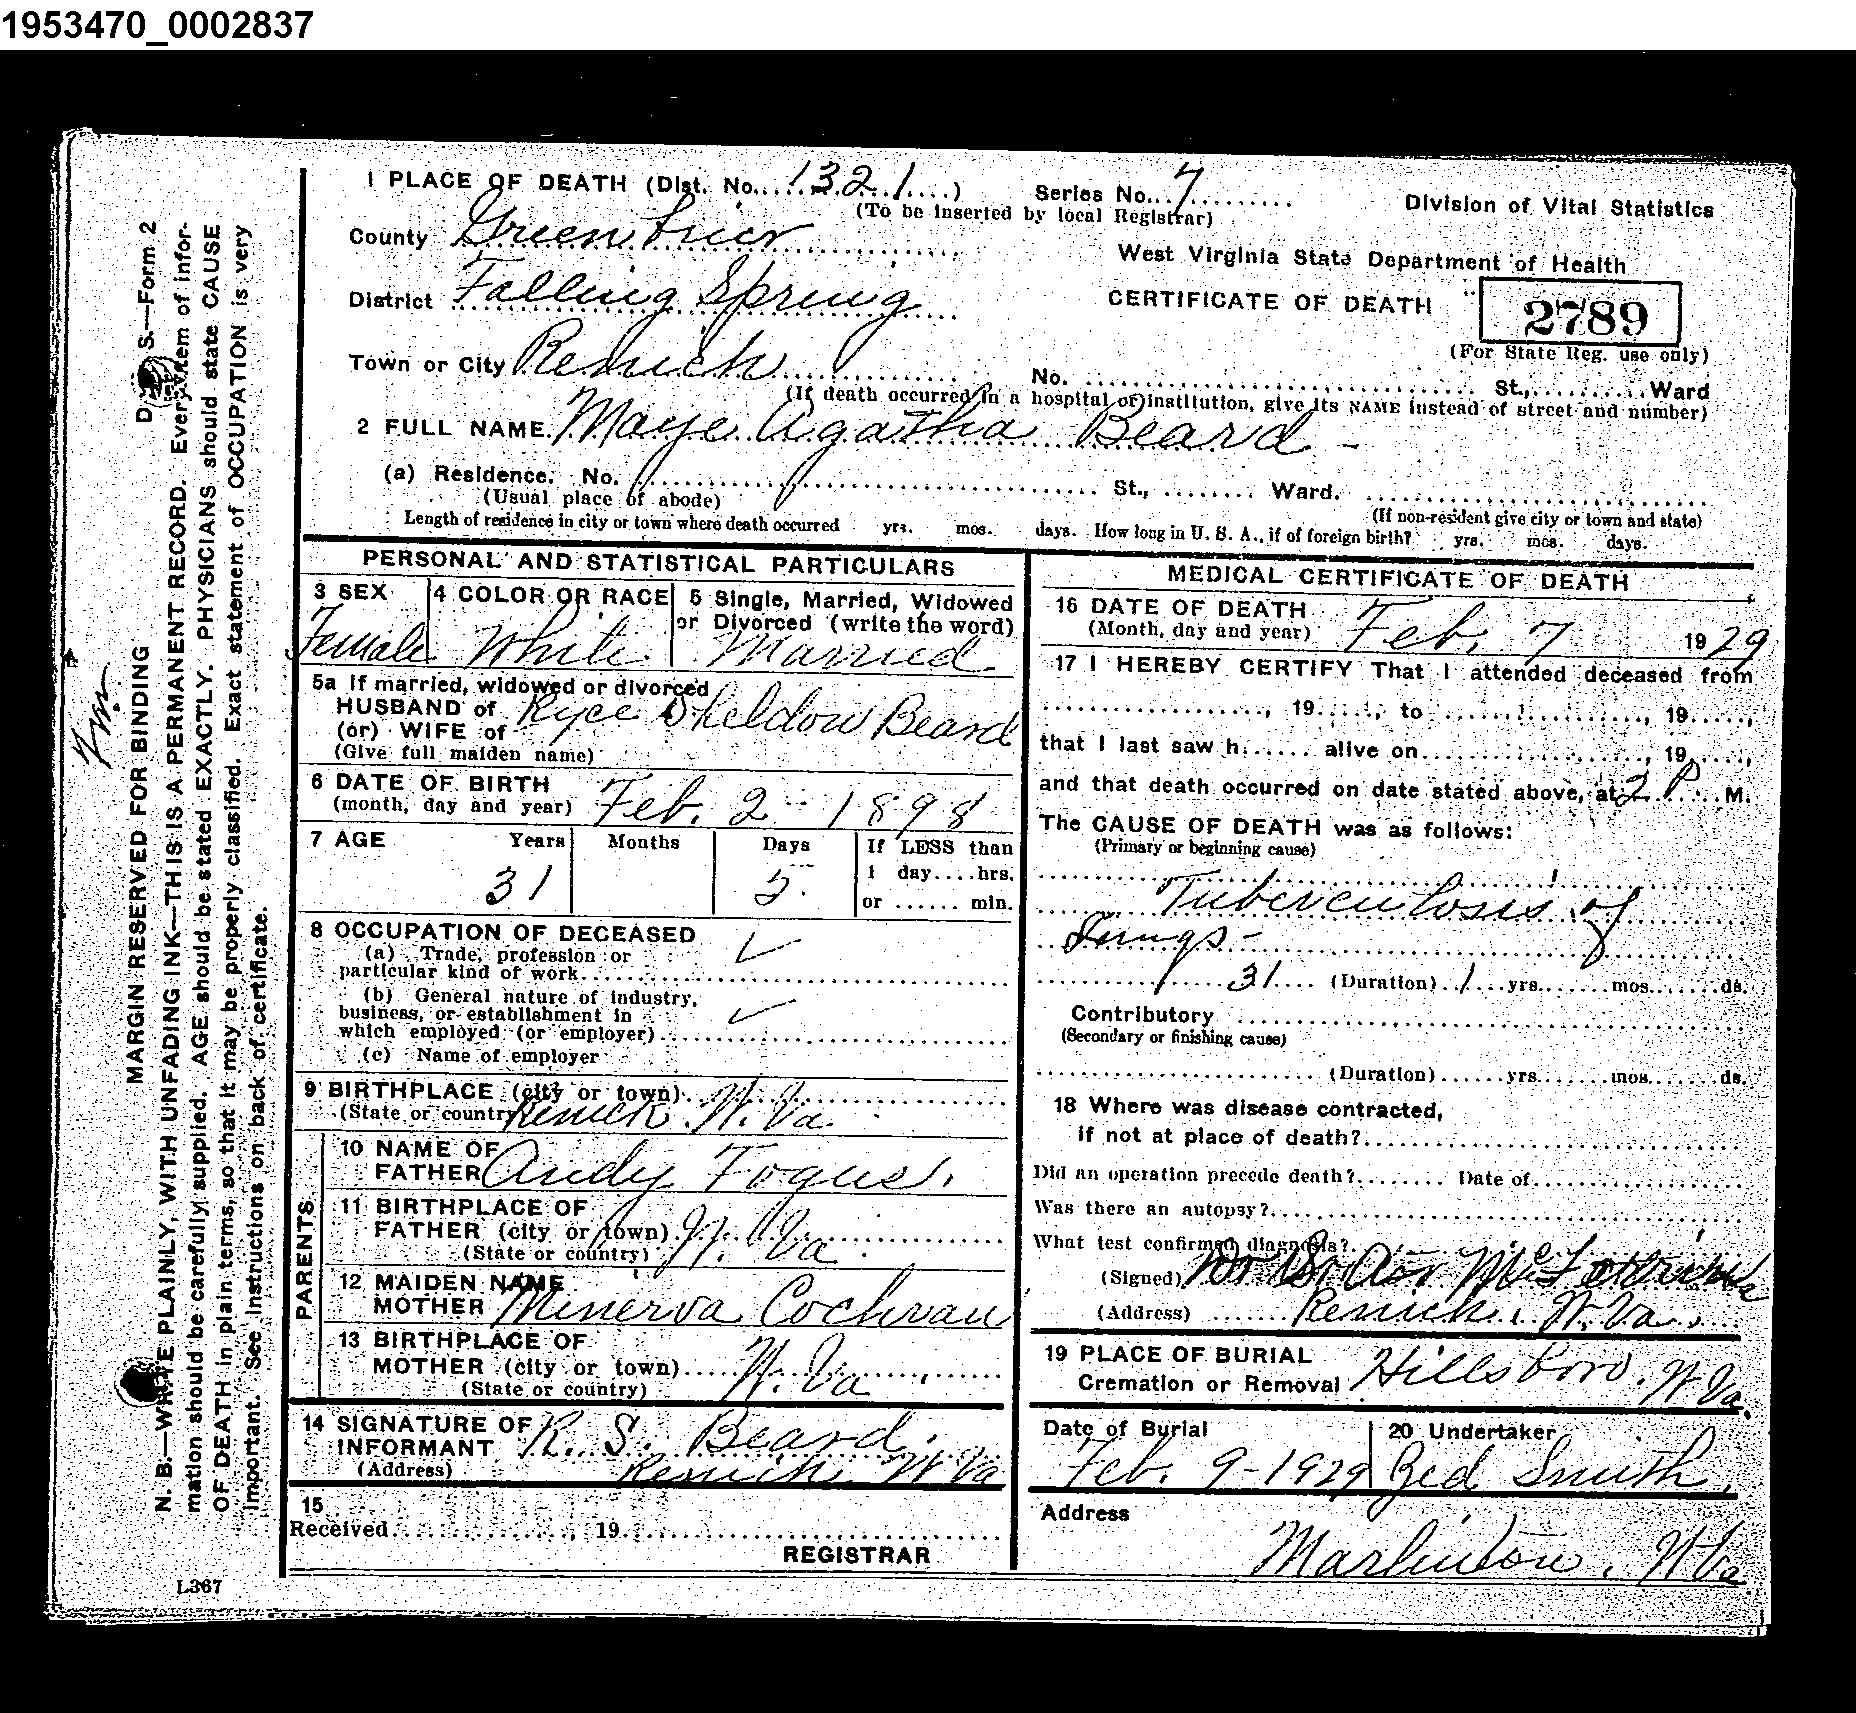 1953470_0002837
1 PLACE OF DEATH (Dist. No. 1321) Series No. 7
(To be inserted by local Registrar)
Division of Vital Statistics
County Greenbrier
West Virginia State Department of Health
District Falling Spring
CERTIFICATE OF DEATH 2789
(For State Reg. use only)
Town or City Renick
No. St., Ward
(If death occurred in a hospital or institution, give its NAME instead of street and number)
2 FULL NAME Maye Agatha Beard
(a) Residence. No. St., Ward.
(Usual place of abode)
(If non-resident give city or town and state)
Length of residence in city or town where death occurred yrs. mos. days. How long in U. S. A., if of foreign birth? yrs. mos. days.
PERSONAL AND STATISTICAL PARTICULARS
3 SEX 4 COLOR OR RACE 5 Single, Married, Widowed
or Divorced (write the word)
Female White Married
5a If married, widowed or divorced
HUSBAND of
(or) WIFE of
Ryce Sheldow Beard
(Give full maiden name)
6 DATE OF BIRTH
(month, day and year) Feb. 2 - 1898
7 AGE Years Months Days If LESS than
1 day....hrs.
31 5
or ...... min.
8 OCCUPATION OF DECEASED
(a) Trade, profession or
particular kind of work
(b) General nature of industry,
business, or establishment in
which employed (or employer)
(c) Name of employer
9 BIRTHPLACE (city or town)
(State or country) Renick. W. Va.
PARENTS
10 NAME OF
FATHER Andy Fogus.
11 BIRTHPLACE OF
FATHER (city or town) W. Va.
(State or country)
12 MAIDEN NAME
MOTHER Minerva Cochran
13 BIRTHPLACE OF
MOTHER (city or town) W. Va.
(State or country)
14 SIGNATURE OF
INFORMANT R. S. Beard.
(Address) Renick W Va
15
Received , 19
REGISTRAR
MEDICAL CERTIFICATE OF DEATH
16 DATE OF DEATH
(Month, day and year) Feb. 7 1929
17 I HEREBY CERTIFY That I attended deceased from
, 19 , to , 19 ,
that I last saw h alive on , 19 ,
and that death occurred on date stated above, at 2 P. M.
The CAUSE OF DEATH was as follows:
(Primary or beginning cause)
Tuberculosis of
Lungs -
31 (Duration) 1 yrs. mos. ds.
Contributory
(Secondary or finishing cause)
(Duration) yrs. mos. ds.
18 Where was disease contracted,
if not at place of death?
Did an operation precede death? Date of
Was there an autopsy?
What test confirmed diagnosis?
(Signed)
(Address) Renick. W. Va.
19 PLACE OF BURIAL
Cremation or Removal Hillsboro. W Va.
Date of Burial 20 Undertaker
Feb. 9-1929 Zed Smith.
Address
Marlinton, W Va
S.—Form 2
MARGIN RESERVED FOR BINDING
N. B.—WRITE PLAINLY, WITH UNFADING INK—THIS IS A PERMANENT RECORD. Every item of infor-
mation should be carefully supplied. AGE should be stated EXACTLY. PHYSICIANS should state CAUSE
OF DEATH in plain terms, so that it may be properly classified. Exact statement of OCCUPATION is very
important. See instructions on back of certificate.
L367